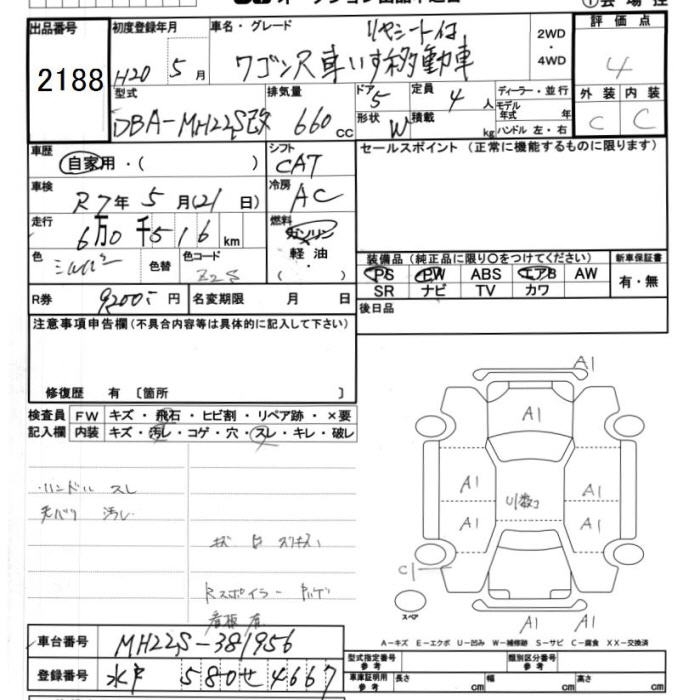 出品番号 初度登録年月 車名・グレード リヤシート付 2WD・4WD 評価点
2188 H20 5月 ワゴンR車いす移動車 4
型式 排気量 ドア 5 定員 4人 ディーラー・並行 外装 内装
DBA-MH22S改 660cc 形状 W 積載 kg モデル年式 年 ハンドル 左・右 C C
車歴 シフト セールスポイント (正常に機能するものに限ります)
自家用・( ) CAT
車検 冷房
R7年5月(21日) AC
走行 燃料
6万0千516km ガソリン
軽油
・( )
色 シルバー 色替 色コード Z2S
装備品 (純正品に限り○をつけてください) 新車保証書
PS PW ABS エアB AW 有・無
SR ナビ TV カワ
R券 円 名変期限 月 日 後日品
注意事項申告欄(不具合内容等は具体的に記入して下さい)
修復歴 有 〔箇所 〕
検査員 FW キズ・飛石・ヒビ割・リペア跡・×要
記入欄 内装 キズ・汚レ・コゲ・穴・スレ・キレ・破レ
ハンドル スレ
汚レ
Rスポイラー
A1
A1
A1 A1
A1 A1
C1
スペア
A1 A1
A-キズ E-エクボ U-凹み W-補修跡 S-サビ C-腐食 XX-交換済
車台番号 MH22S-381956
登録番号 水戸 580 せ 4667
型式指定番号 参考 類別区分番号 参考
車庫証明用 参考 長さ cm 幅 cm 高さ cm